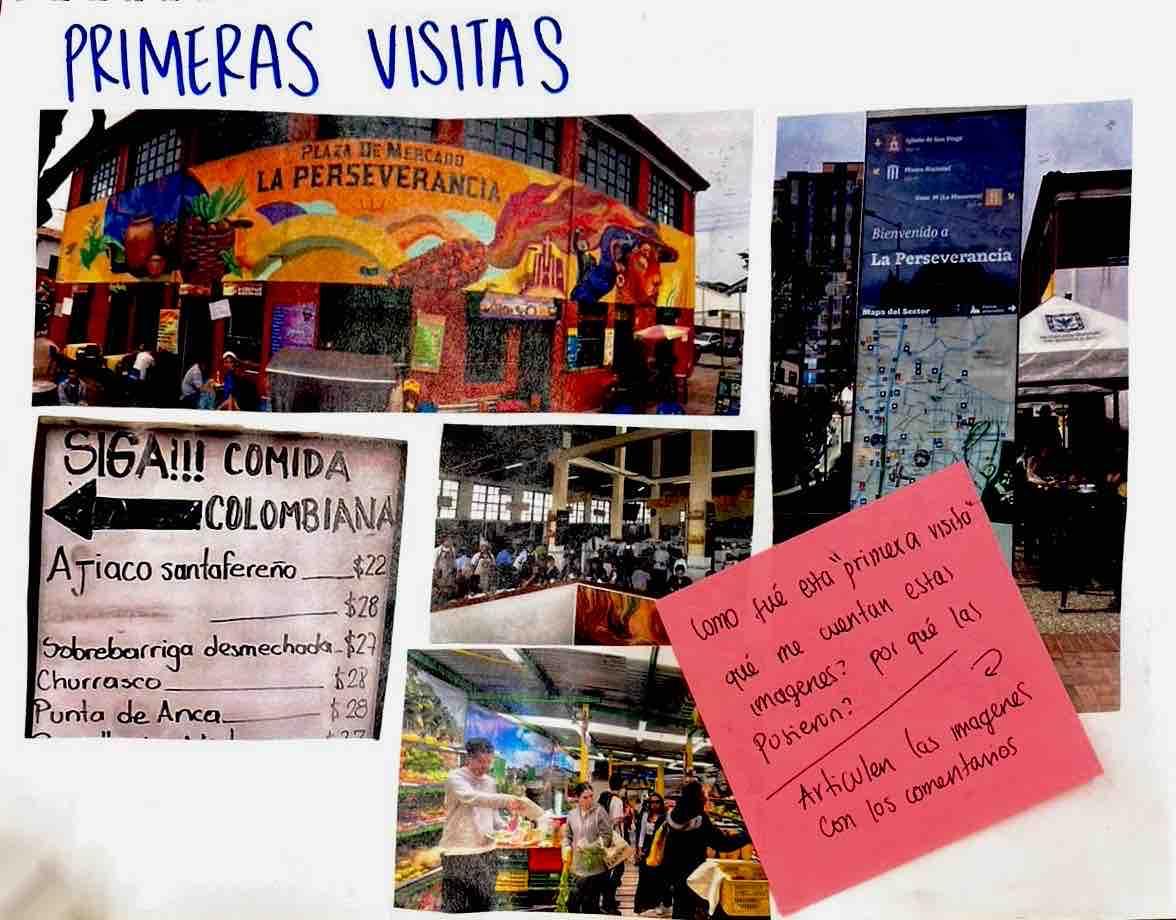 PRIMERAS VISITAS
PLAZA DE MERCADO
LA PERSEVERANCIA
Iglesia de San Diego
Museo Nacional
Bienvenido a
La Perseverancia
Mapa del Sector
SIGA!!! COMIDA
COLOMBIANA
Ajiaco santafereño $22
$28
Sobrebarriga desmechada $27
Churrasco $28
Punta de Anca $28
Como fué esta "primera visita"
qué me cuentan estas
imagenes? por qué las
pusieron?
Articulen las imagenes
con los comentarios